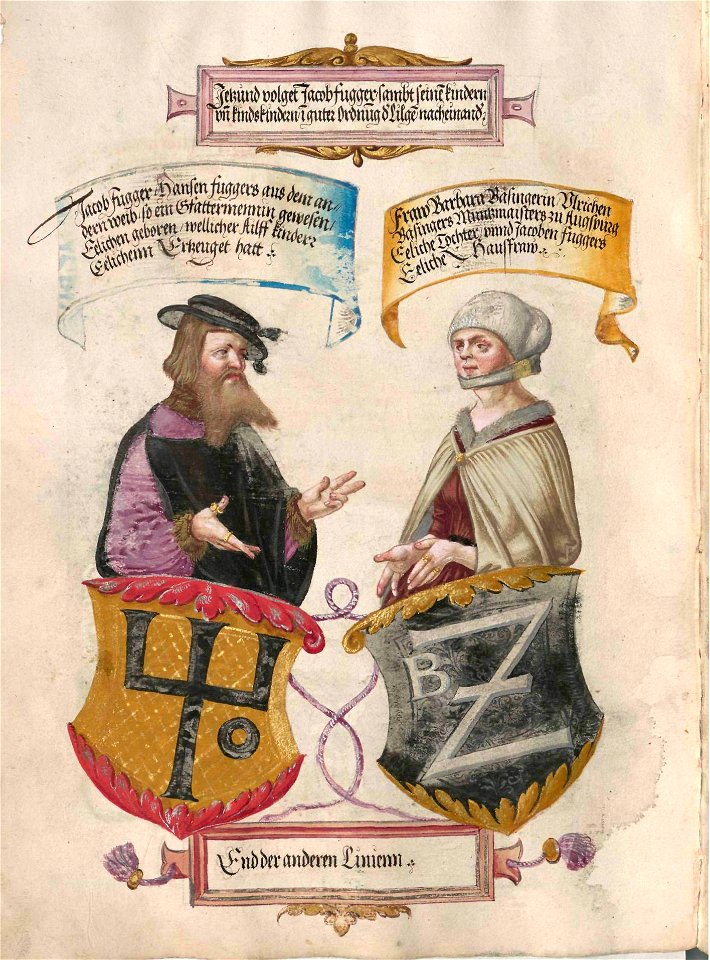 Jetzund volget Jacob fugger sambt seinē kindern
vn̄ kindskindern ī guter Ordnūg d Lilgē nacheinand
Jacob fugger Hansen fuggers aus dem an-
dern weib, so ein Gfattermennin gewesen,
Eelichen geboren, wellicher Ailff kinder
Eelichenn Erzeuget hatt
Fraw Barbara Bäsingerin Vlrichen
Bäsingers Müntzmaisters zu Augspurg
Eeliche Tochter, vnnd Jacoben fuggers
Eeliche Hausfraw
B
End der anderen Linienn